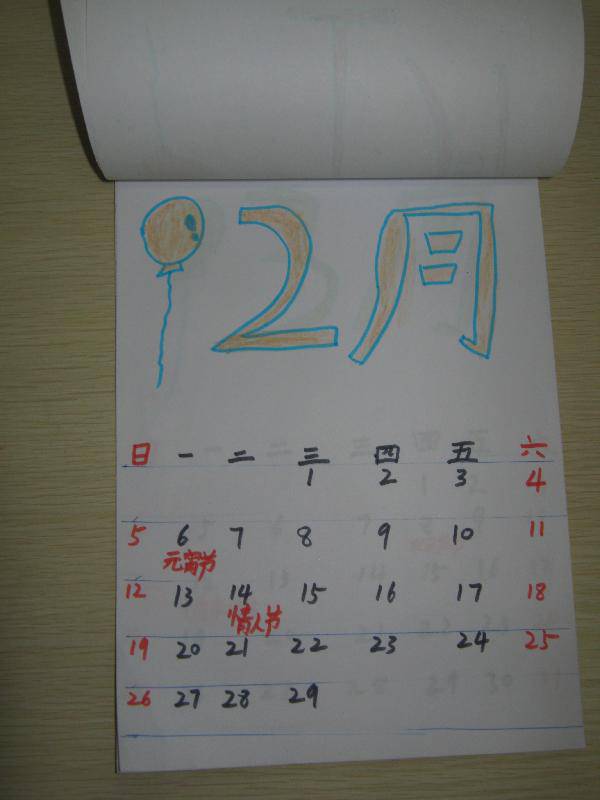 2月
日 一 二 三 四 五 六
1 2 3 4
5 6 7 8 9 10 11
元宵节
12 13 14 15 16 17 18
情人节
19 20 21 22 23 24 25
26 27 28 29